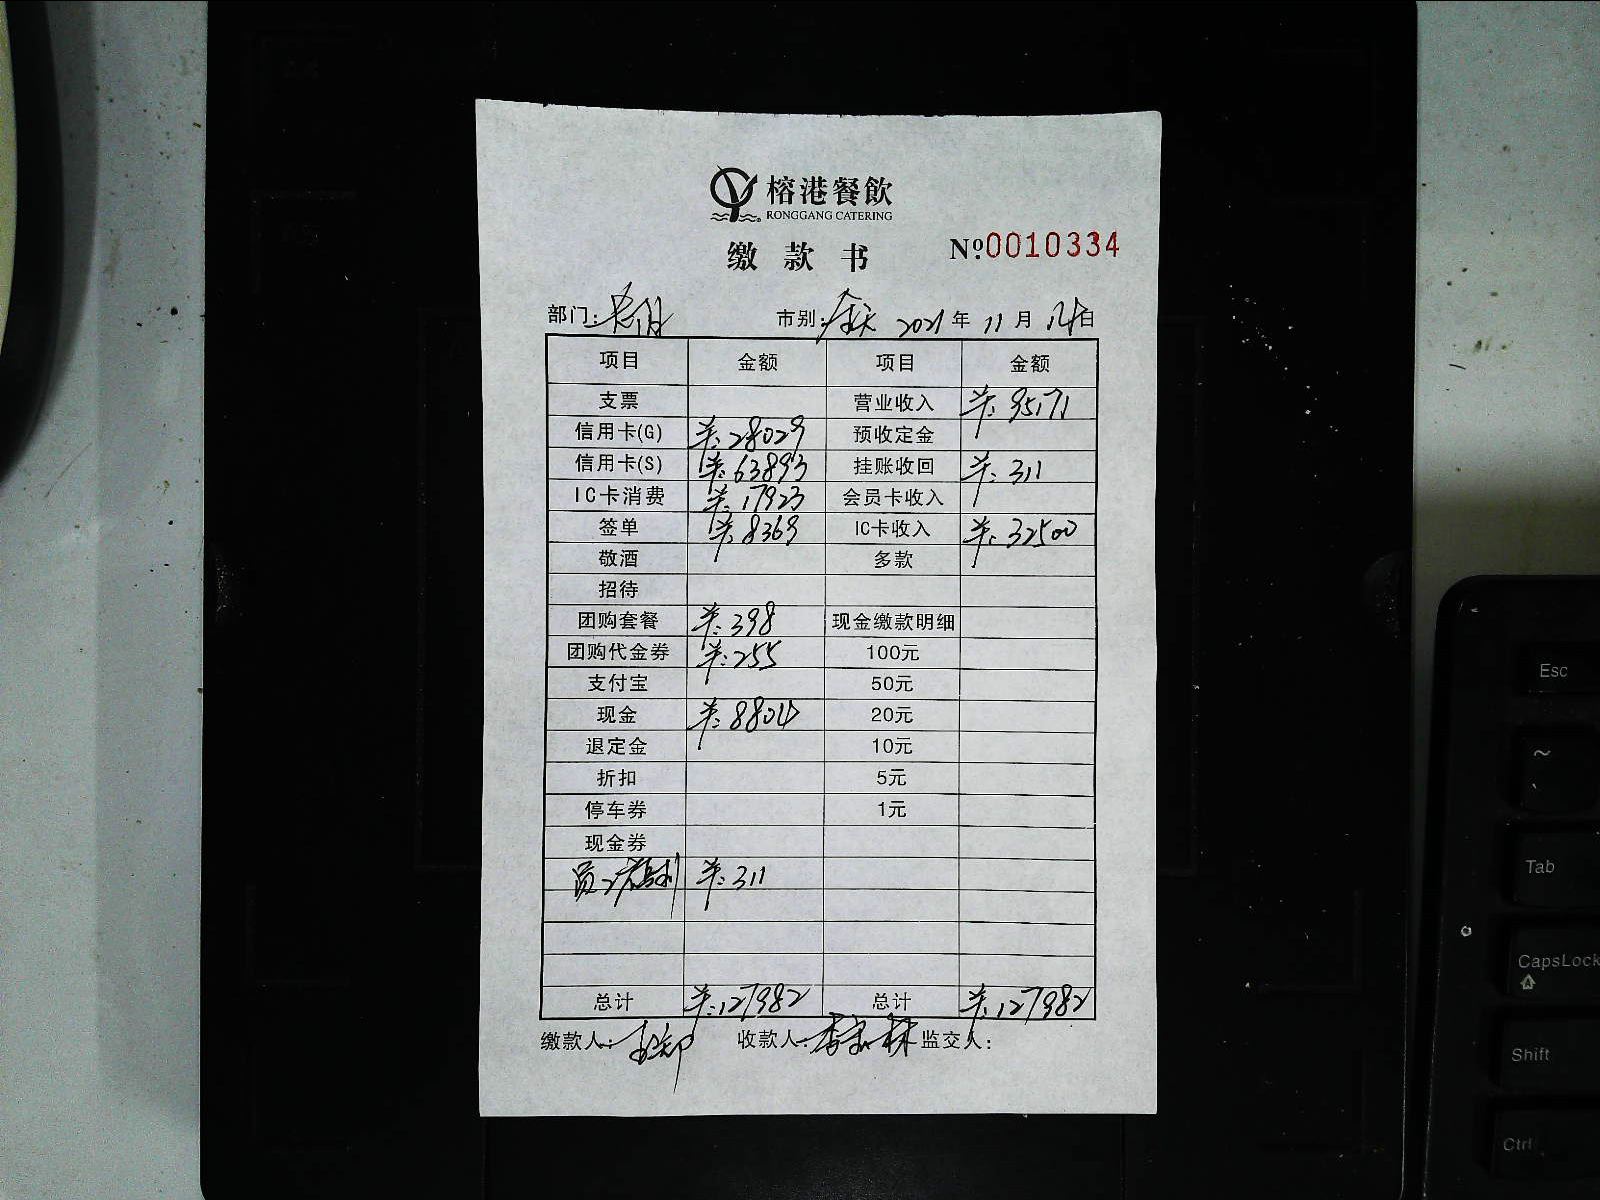 榕港餐飲
RONGGANG CATERING
缴款书 №0010334
部门: 市别: 全天 2021年11月14日
项目 金额 项目 金额
支票 营业收入 羊:95171
信用卡(G) 羊:28029 预收定金
信用卡(S) 羊:63893 挂账收回 羊:311
IC卡消费 羊:17923 会员卡收入
签单 羊:8369 IC卡收入 羊:32500
敬酒 多款
招待
团购套餐 羊:398 现金缴款明细
团购代金券 羊:255 100元
支付宝 50元
现金 羊:8804 20元
退定金 10元
折扣 5元
停车券 1元
现金券
羊:311
总计 羊:127982 总计 羊:127982
缴款人: 收款人: 监交人:
Esc
~
Tab
CapsLock
Shift
Ctrl